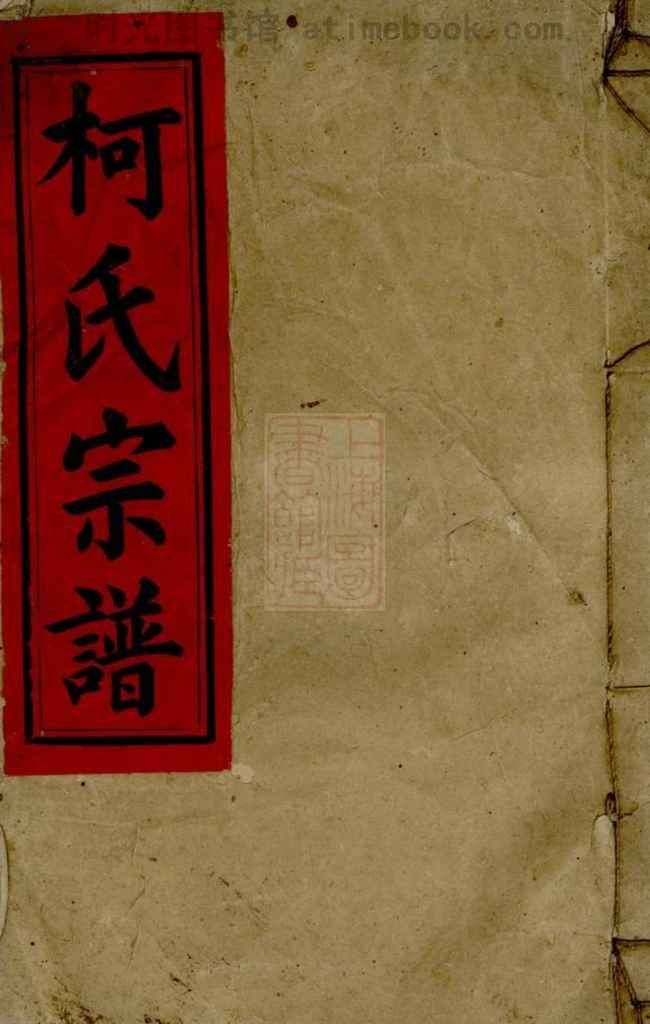 时光图书馆·atimebook.com
柯氏宗譜
上海圖
書館藏